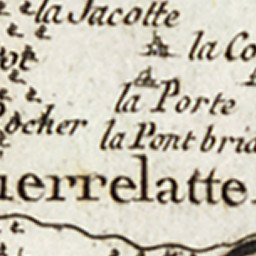 la Jacotte
la Co
la Porte
Rocher
la Pontbrid
uerrelatte.